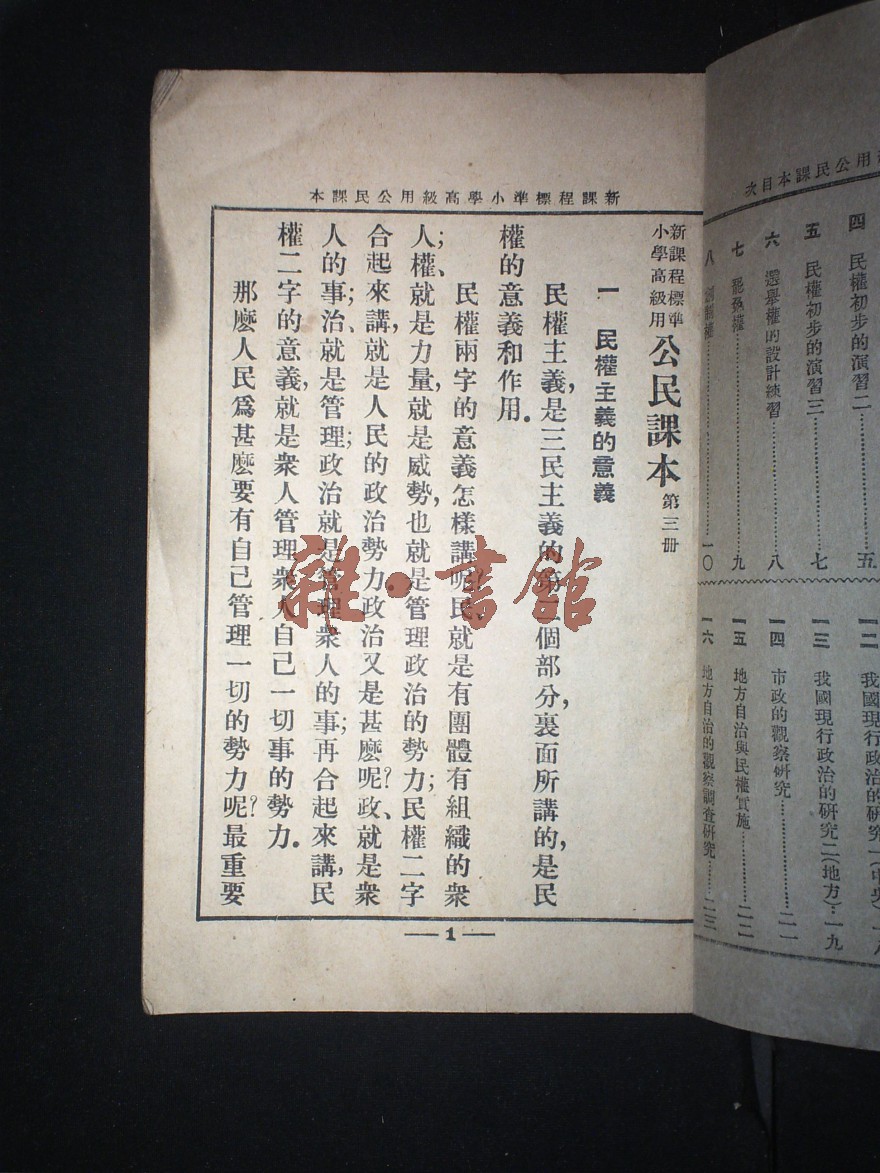 新課程標準小學高級用公民課本
新課程標準
小學高級用
公民課本 第三冊
一 民權主義的意義
民權主義，是三民主義的第二個部分，裏面所講的，是民
權的意義和作用。
民權兩字的意義怎樣講呢？民、就是有團體有組織的衆
人；權、就是力量，就是威勢，也就是管理政治的勢力；民權二字
合起來講，就是人民的政治勢力。政治又是甚麽呢？政、就是衆
人的事；治、就是管理；政治就是管理衆人的事；再合起來講，民
權二字的意義，就是衆人管理衆人自己一切事的勢力。
那麽人民爲甚麽要有自己管理一切的勢力呢？最重要
— 1 —
用公民課本目次
四 民權初步的演習二……五
五 民權初步的演習三……七
六 選舉權的設計練習……八
七 罷免權……九
八 創制權……一〇
一二 我國現行政治的研究一（中央）…一八
一三 我國現行政治的研究二（地方）…一九
一四 市政的觀察研究……二一
一五 地方自治與民權實施……二二
一六 地方自治的觀察調查研究……二三
雜·書館